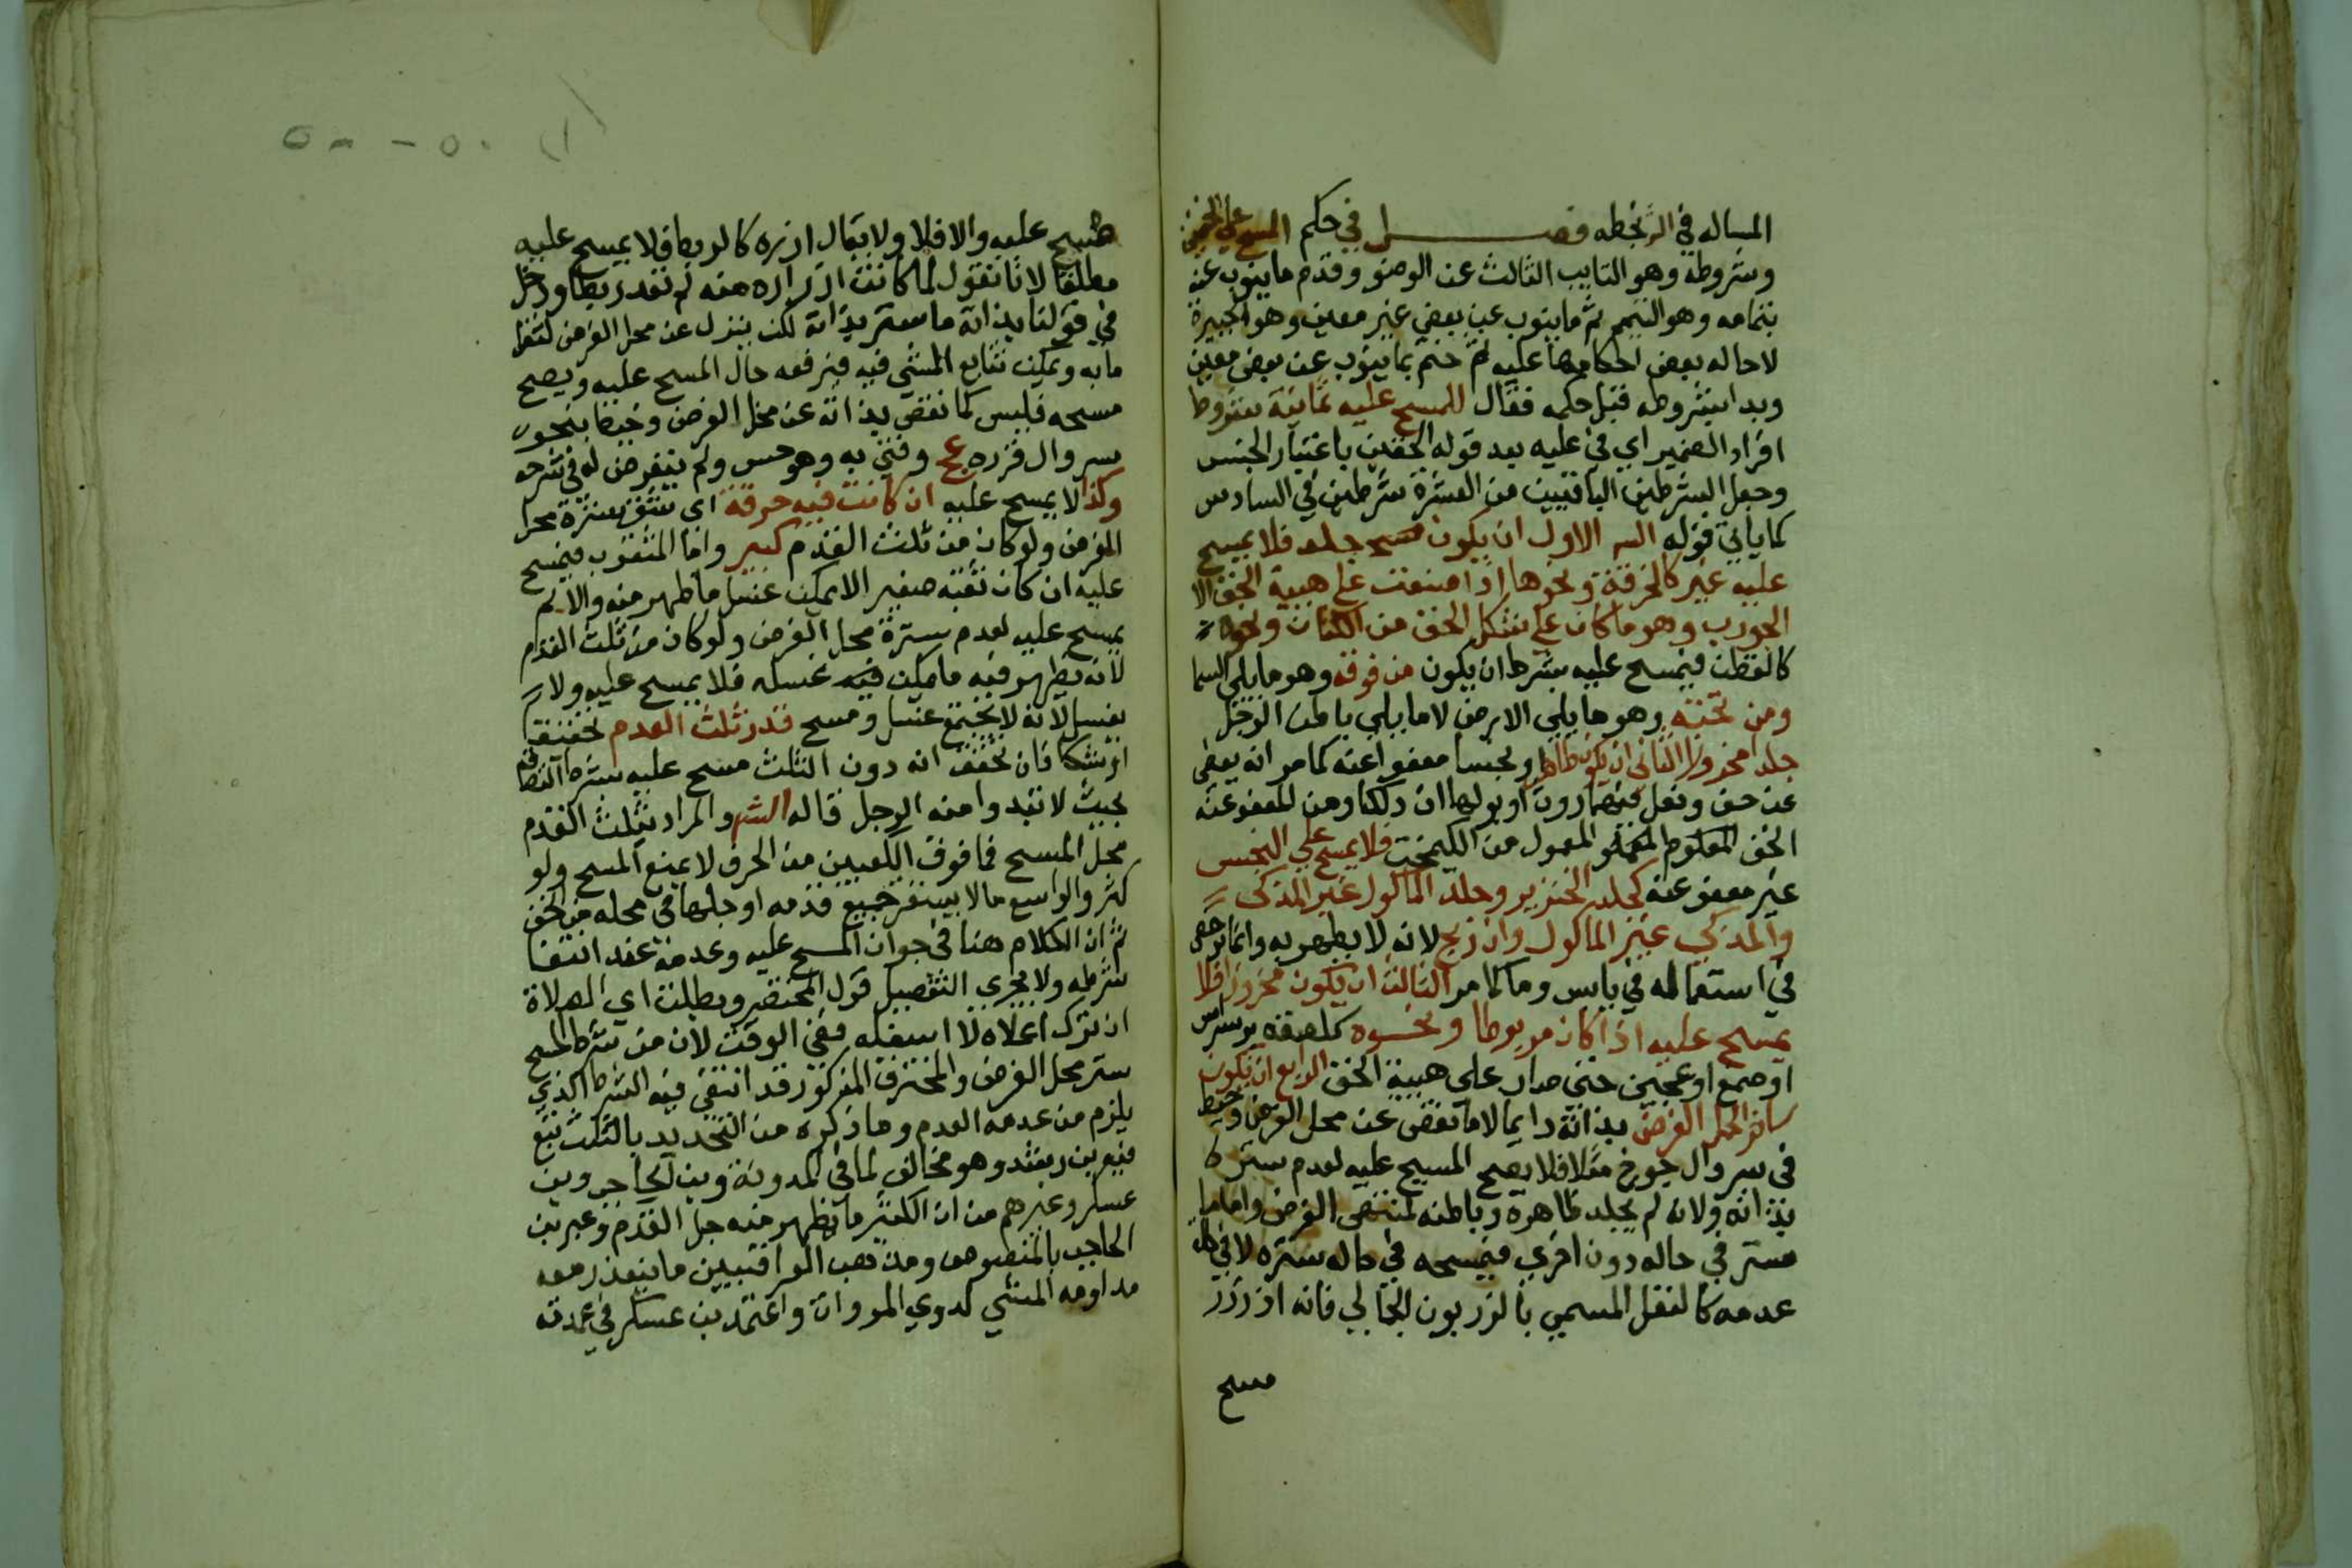 المساله في الزنخطه فصل في حكم المسح علي الخفين
وشروطه وهو النايب الثالث عن الوضو وقدم ما ينوب عنه
بتمامه وهو التيمم ثم ما ينوب عن بعض غير معين وهو الجبيرة
لاحاله بعض احكامها عليه ثم ختم بما ينوب عن بعض معين
وبدا بشروطه قبل حكمه فقال للمسح عليه ثمانية شروط
افراد الضمير اي في عليه بعد قوله الخفين باعتبار الجنس
وجعل الشرطين الباقيين من العشرة شرطين في السادس
كما ياتي قوله الاول ان يكون جلد فلا يمسح
عليه غير كالخرقة ونحوها اذا صنعت علي هيية الخف الا
الجورب وهو ما كان علي شكل الخف من الكتان ونحوه
كالقطن فيمسح عليه بشرط ان يكون من فوقه وهو ما يلي السما
ومن تحته وهو ما يلي الارض لا ما يلي باطن الرجل
جلد مخروز الثاني ان يكون طاهرا او نجسا معفوا عنه كما مر انه يعفي
عن خف ونعل من روث او بولها ان دلكا ومن المعفو عنه
الخف المعمول من الكيمخت فلا يمسح علي النجس
غير معفو عنه كجلد الخنزير وجلد الماكول غير المذكي
والمذكي غير الماكول وان ذبح لانه لا يطهر به وانما رخص
في استعماله في يابس وما كما مر الثالث ان يكون مخروزا فلا
يمسح عليه اذا كان مربوطا ونحوه كلصقه بسراس
او صمغ او عجين حتي صار علي هيية الخف الرابع ان يكون
ساتر المحل الفرض بذاته دايما لا ما نقص عن محل الفرض وخيط
في سروال جوخ مثلا فلا يصح المسح عليه لعدم ستره
بذاته ولانه لم يجلد ظاهره وباطنه لمنتهي الفرض واما ما
ستر في حاله دون اخري فيمسحه في حاله ستره لا في حال
عدمه كالنعل المسمي بالزربون الجالي فانه ان زرر
مسح
مسح عليه والا فلا ولا يقال ازره كالربط فلا يمسح عليه
مطلقا لانا نقول لما كانت ازراره منه لم تعد ربطا ودخل
في قولنا بذاته ما ستر بذاته لكن ينزل عن محل الفرض لثقل
مابه ويمكن تتابع المشي فيه فيرفعه حال المسح عليه ويصح
مسحه فليس كما نقص بذاته عن محل الفرض وخيط بنحو
سروال قرره عج وفتي به وهو حسن ولم يتعرض له في شرحه
وكذا لا يمسح عليه ان كانت فيه خرقة اي شق سترة محل
الفرض ولو كان من ثلث القدم كبير واما المثقوب فيمسح
عليه ان كان ثقبه صغير الا يمكن غسل ما ظهر منه والا لم
يمسح عليه لعدم سترة محل الفرض ولو كان من ثلث القدم
لانه يظهر فيه ما يمكن فيه غسله فلا يمسح عليه ولا
يغسل لانه لا يجتمع غسل ومسح قدر ثلث القدم تحقيقا
او شكا فان تحقق انه دون الثلث مسح عليه بشرط التصاقه
بحيث لا تبدوا منه الرجل قاله الشر والمراد بثلث القدم
محل المسح فما فوق الكعبين من الخرق لا يمنع المسح ولو
كثر والواسع ما لا يستقر جميع قدمه او جلها في محله من الخف
ثم ان الكلام هنا في جواز المسح عليه وعدمه عند انتفا
شرطه ولا يجري التفصيل قول المختصر وبطلت اي الصلاة
ان ترك اعلاه لا اسفله ففي الوقت لان من شرط المسح
ستر محل الفرض والمخترق المذكور قد انتفي فيه الشرط الذي
يلزم من عدمه العدم وما ذكره من التحديد بالثلث تبع
فيه بن رشد وهو مخالف لما في المدونة وبن الحاجب وبن
عسكر وغيرهم من ان الكثير ما يظهر منه جل القدم وعبر بن
الحاجب بالمنصوص ومذهب العراقيين ما يتعذر معه
مداومه المشي لذوي المروات واعتمد بن عسكر في عمدته